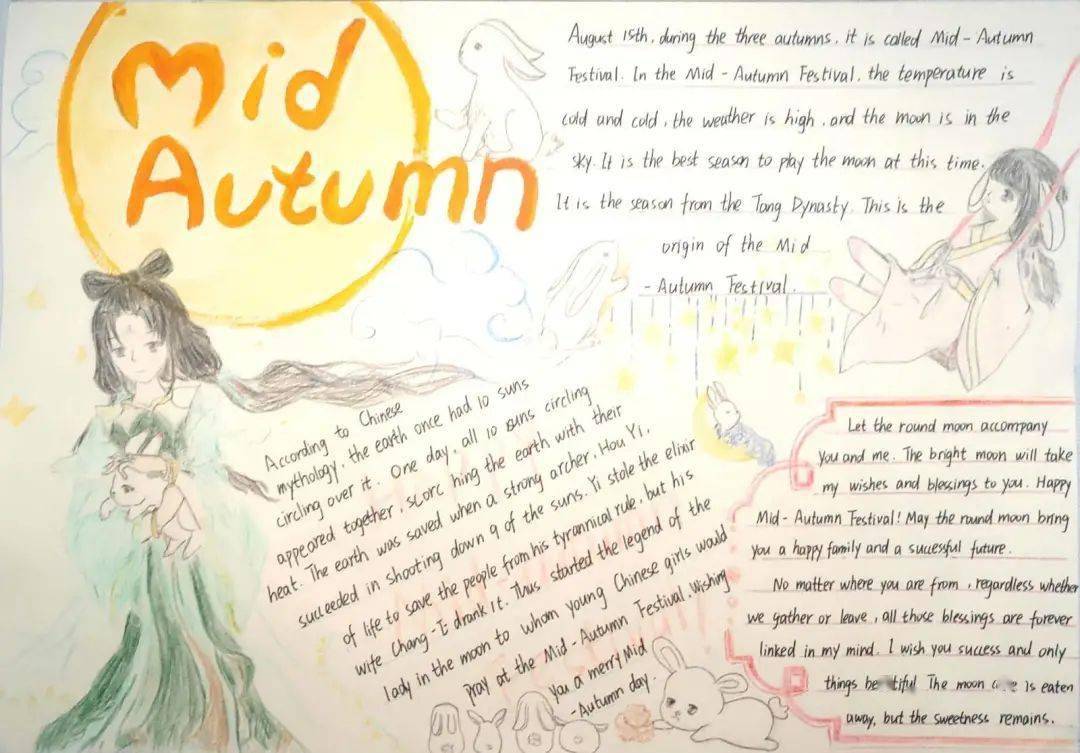 Mid
Autumn
August 15th, during the three autumns, it is called Mid-Autumn
Festival. In the Mid-Autumn Festival, the temperature is
cold and cold, the weather is high, and the moon is in the
sky. It is the best season to play the moon at this time.
It is the season from the Tang Dynasty. This is the
origin of the Mid
-Autumn Festival.
According to Chinese
mythology, the earth once had 10 suns
circling over it. One day, all 10 suns circling
appeared together, scorc hing the earth with their
heat. The earth was saved when a strong archer, Hou Yi,
succeeded in shooting down 9 of the suns. Yi stole the elixir
of life to save the people from his tyrannical rule, but his
wife Chang-E drank it. Thus started the legend of the
lady in the moon to whom young Chinese girls would
pray at the Mid-Autumn Festival. Wishing
you a merry Mid
-Autumn day.
Let the round moon accompany
you and me. The bright moon will take
my wishes and blessings to you. Happy
Mid-Autumn Festival! May the round moon bring
you a happy family and a successful future.
No matter where you are from, regardless whether
we gather or leave, all those blessings are forever
linked in my mind. I wish you success and only
things The moon is eaten
away, but the sweetness remains.